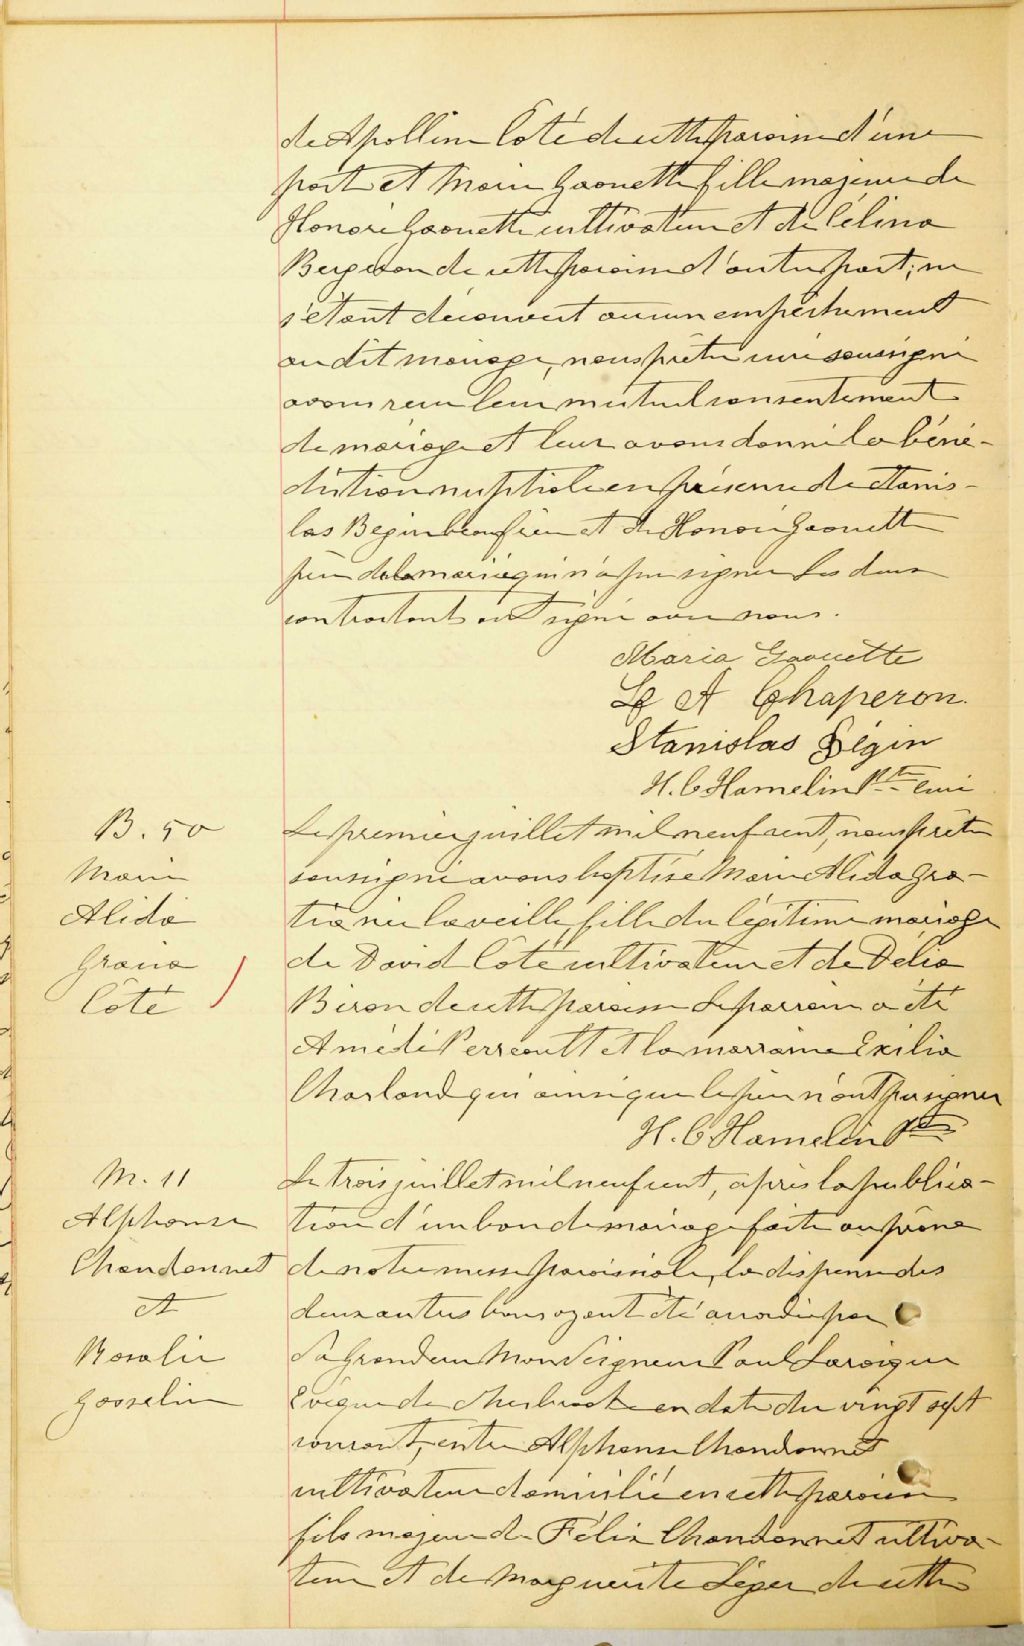 de Apolline Coté de cette paroisse d'une
part et Marie Gaouette fille majeure de
Honoré Gaouette cultivateur et de Célina
Bergeron de cette paroisse d'autre part; ne
s'étant découvert aucun empêchement
au dit mariage, nous prêtre curé soussigné
avons reçu leur mutuel consentement
de mariage et leur avons donné la béné-
diction nuptiale en présence de Stanis-
las Begin beau frère et de Honoré Gaouette
père de la mariée qui n'a pu signer Les deux
contractants ont signé avec nous.
Maria Gaouette
A Chaperon.
Stanislas Bégin
H. C Hamelin Ptre curé
B. 50
Marie
Alida
Gracia
Côté
Le premier juillet mil neuf cent, nous prêtre
soussigné avons baptisé Marie Alida Gra-
tia née la veille, fille du légitime mariage
de David Côté cultivateur et de Délia
Biron de cette paroisse Le parrain a été
Amédé Perreault et la marraine Exilia
Charland qui ainsi que le père n'ont pu signer
H. C Hamelin Ptre
M. 11
Alphonse
Chandonnet
et
Rosalie
Gosselin
Le trois juillet mil neuf cent, après la publica-
tion d'un ban de mariage faite au prône
de notre messe paroissiale, la dispense des
deux autres bans ayant été accordée par
Sa Grandeur Monseigneur Paul Larocque
Evêque de Sherbrooke en date du vingt sept
courant, entre Alphonse Chandonnet
cultivateur domicilié en cette paroisse
fils majeur de Félix Chandonnet cultiva-
teur et de Marguerite Léger de cette